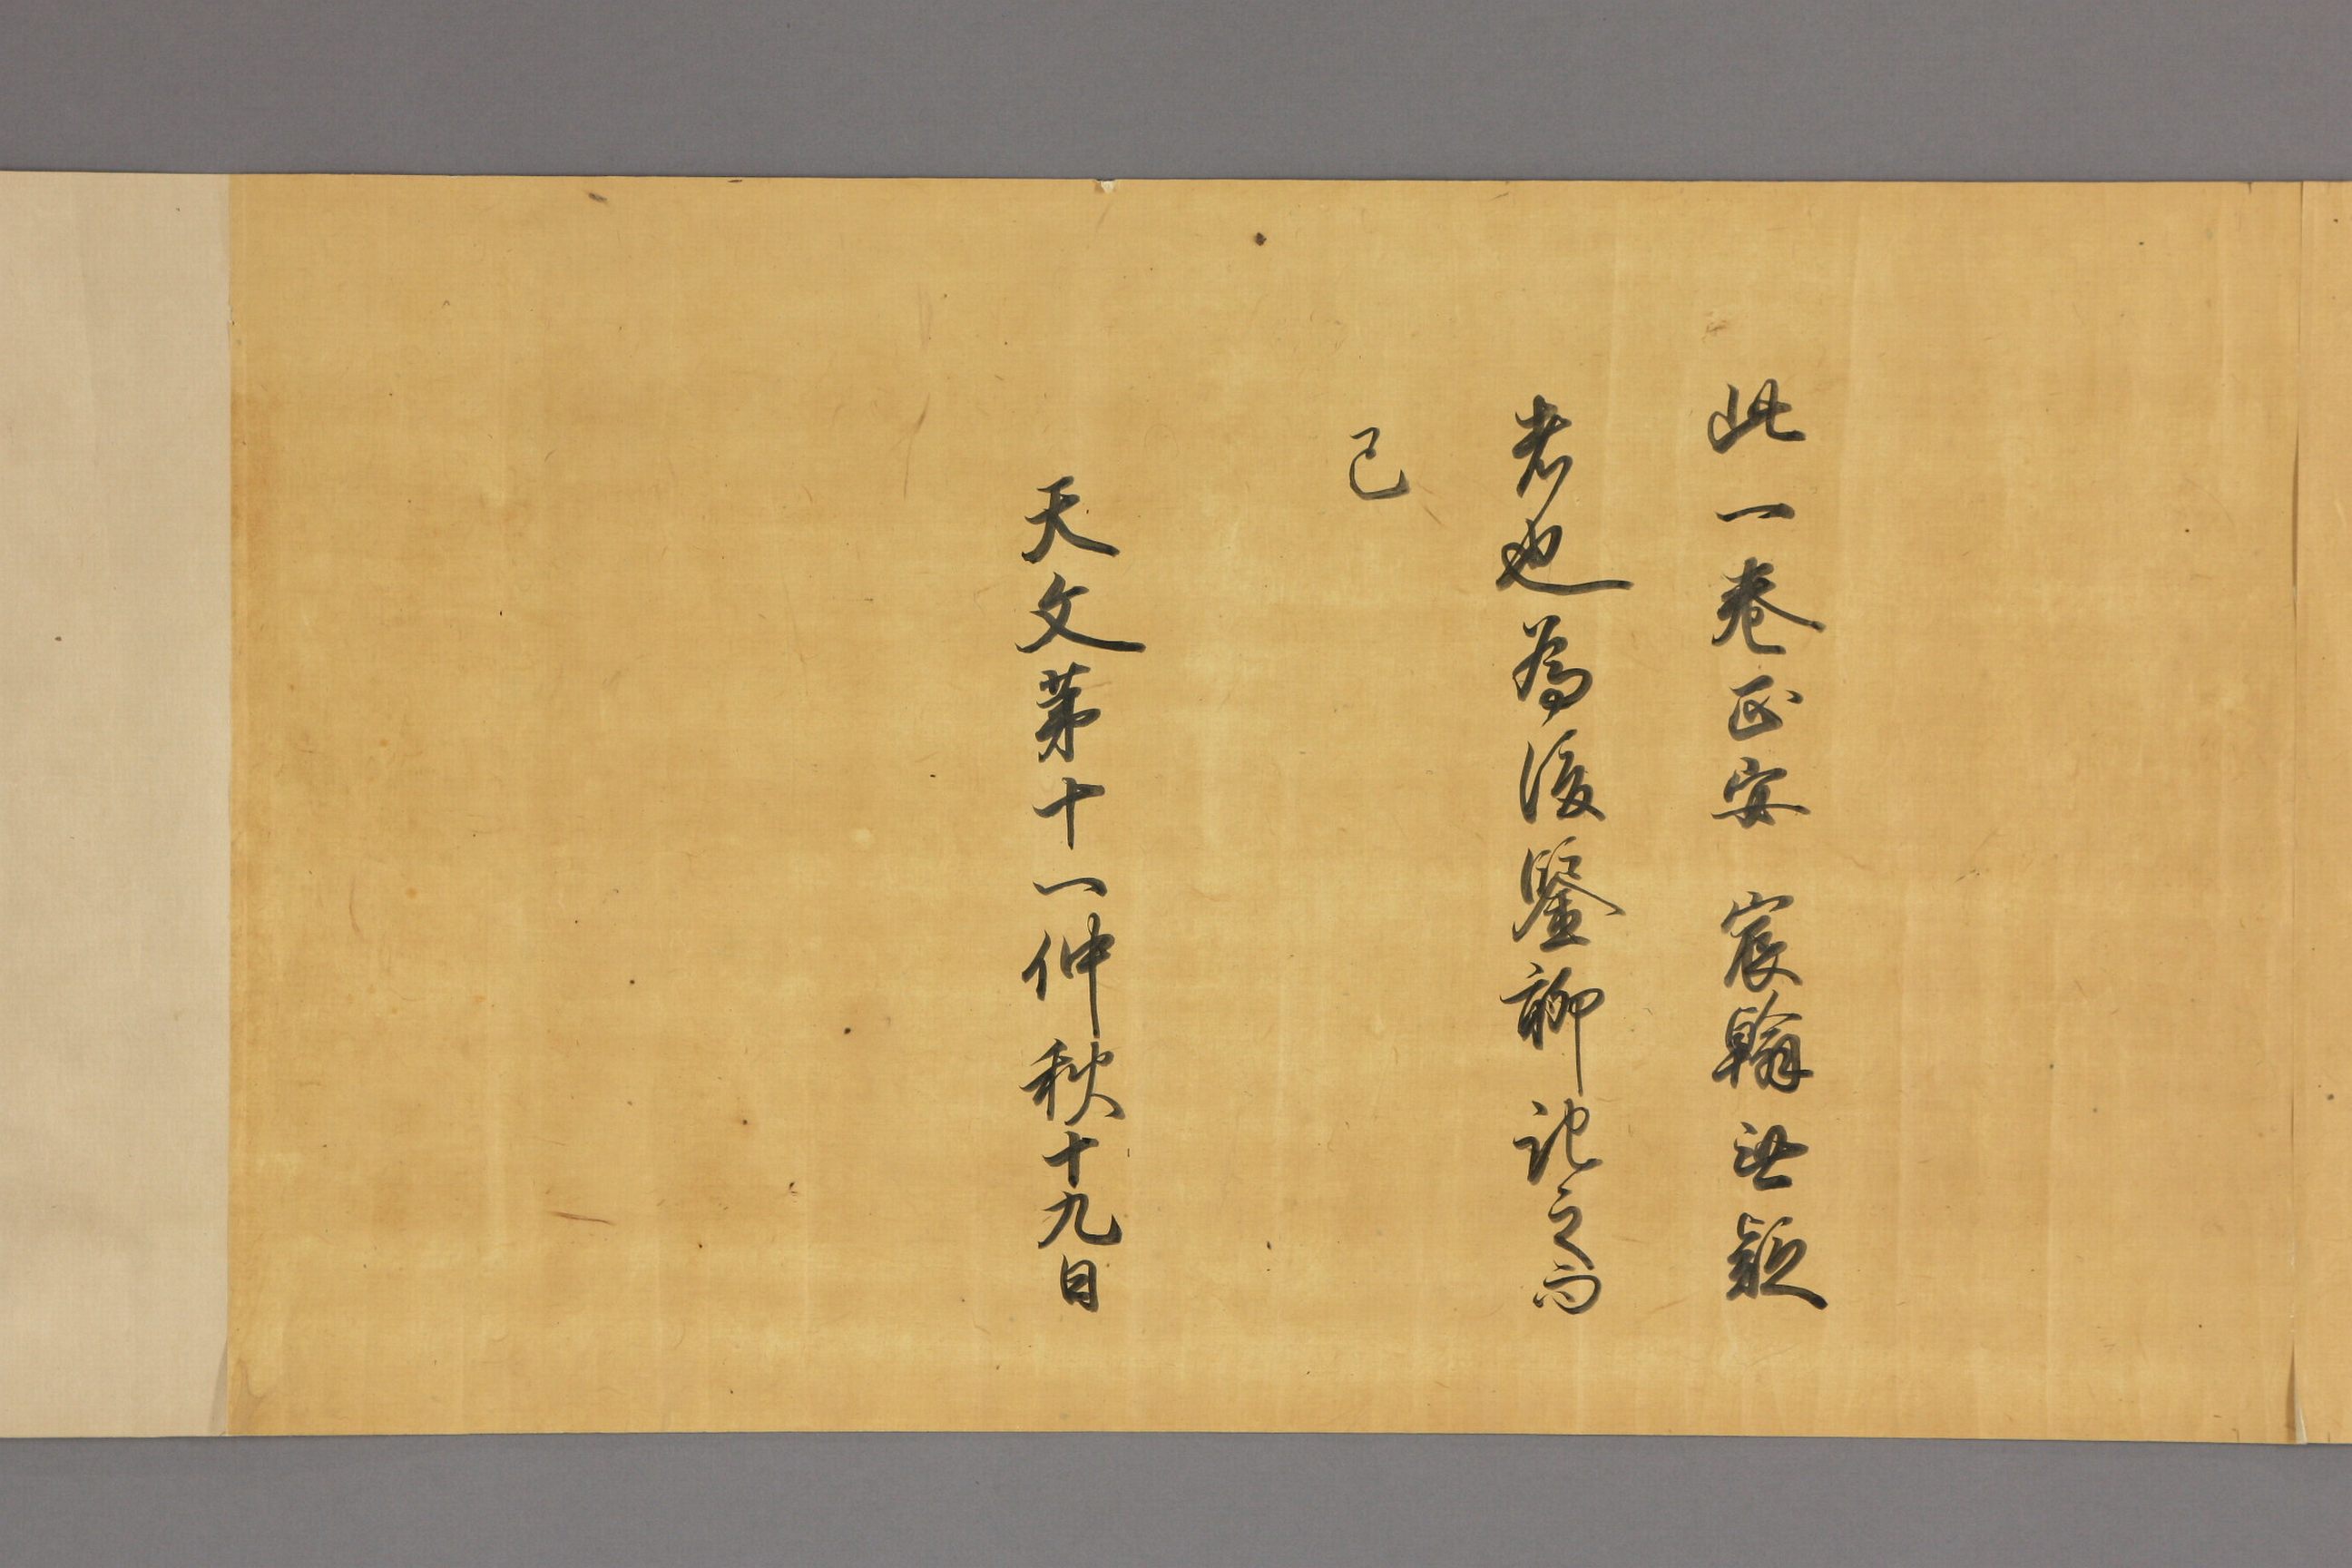 此一巻正安　宸翰無疑
者也為後鑒聊記之而
已
天文第十一仲秋十九日